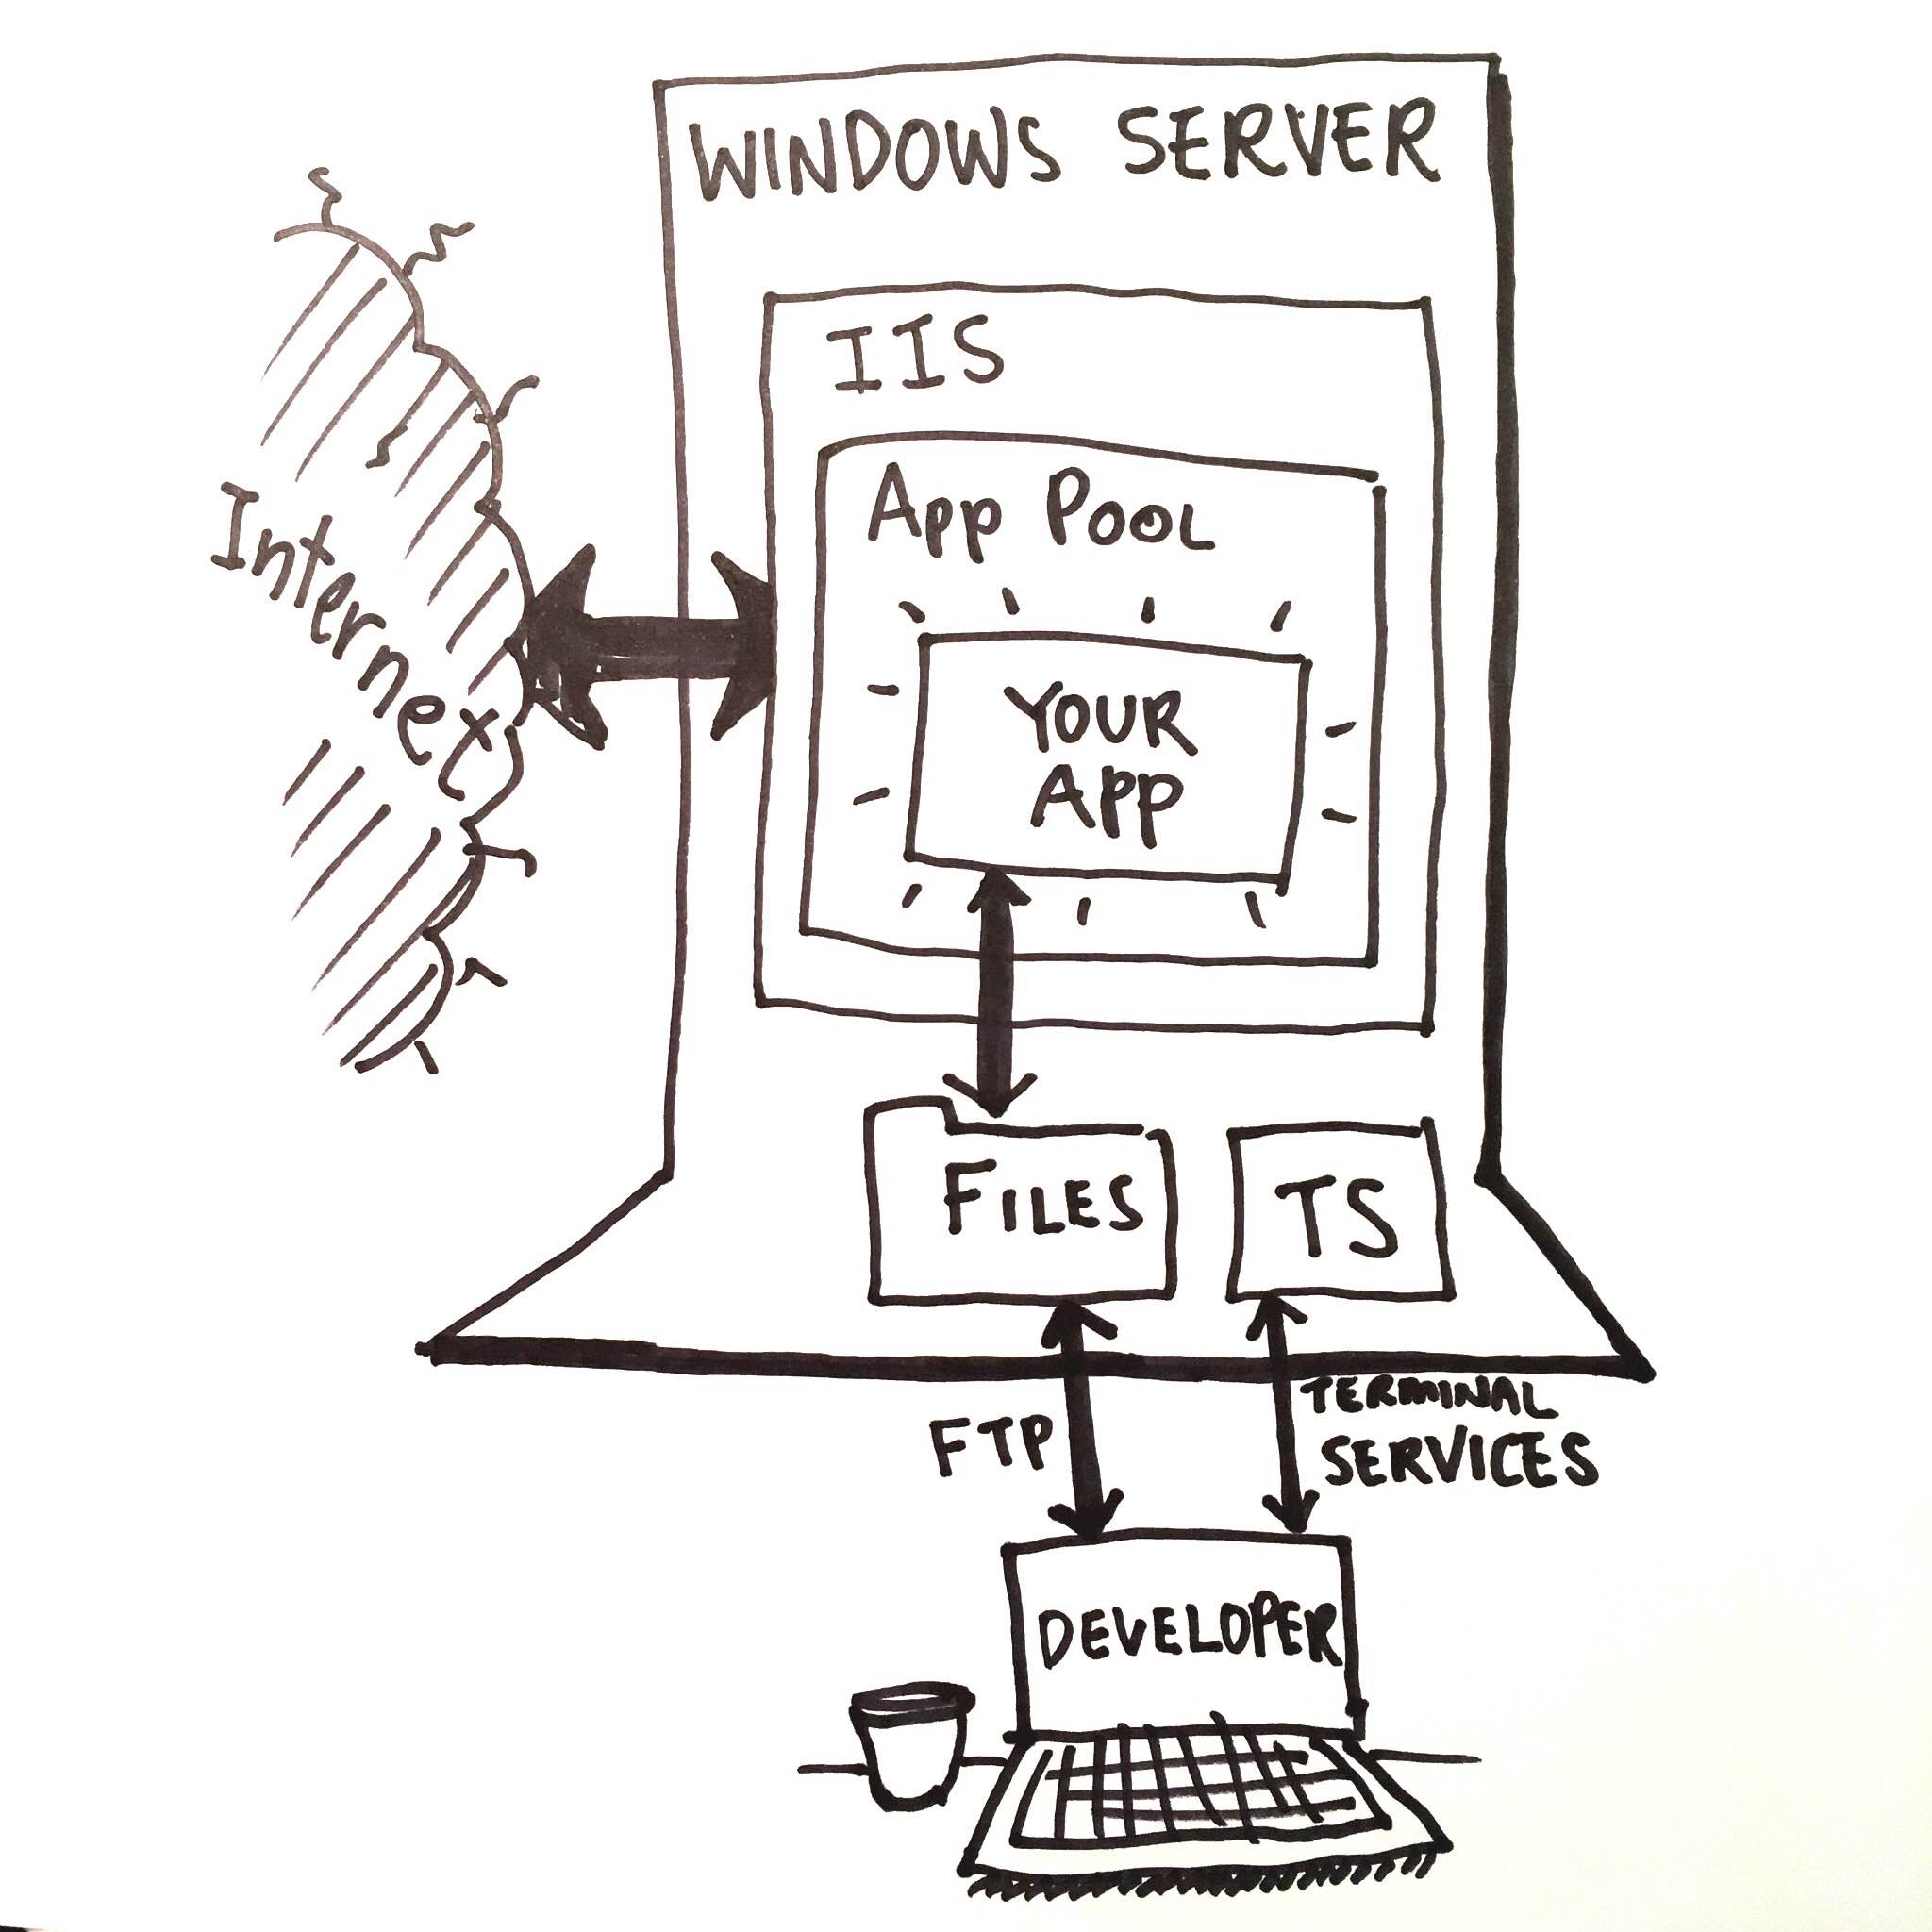 WINDOWS SERVER
IIS
App Pool
YOUR
App
Internet
FILES
TS
FTP
TERMINAL
SERVICES
DEVELOPER